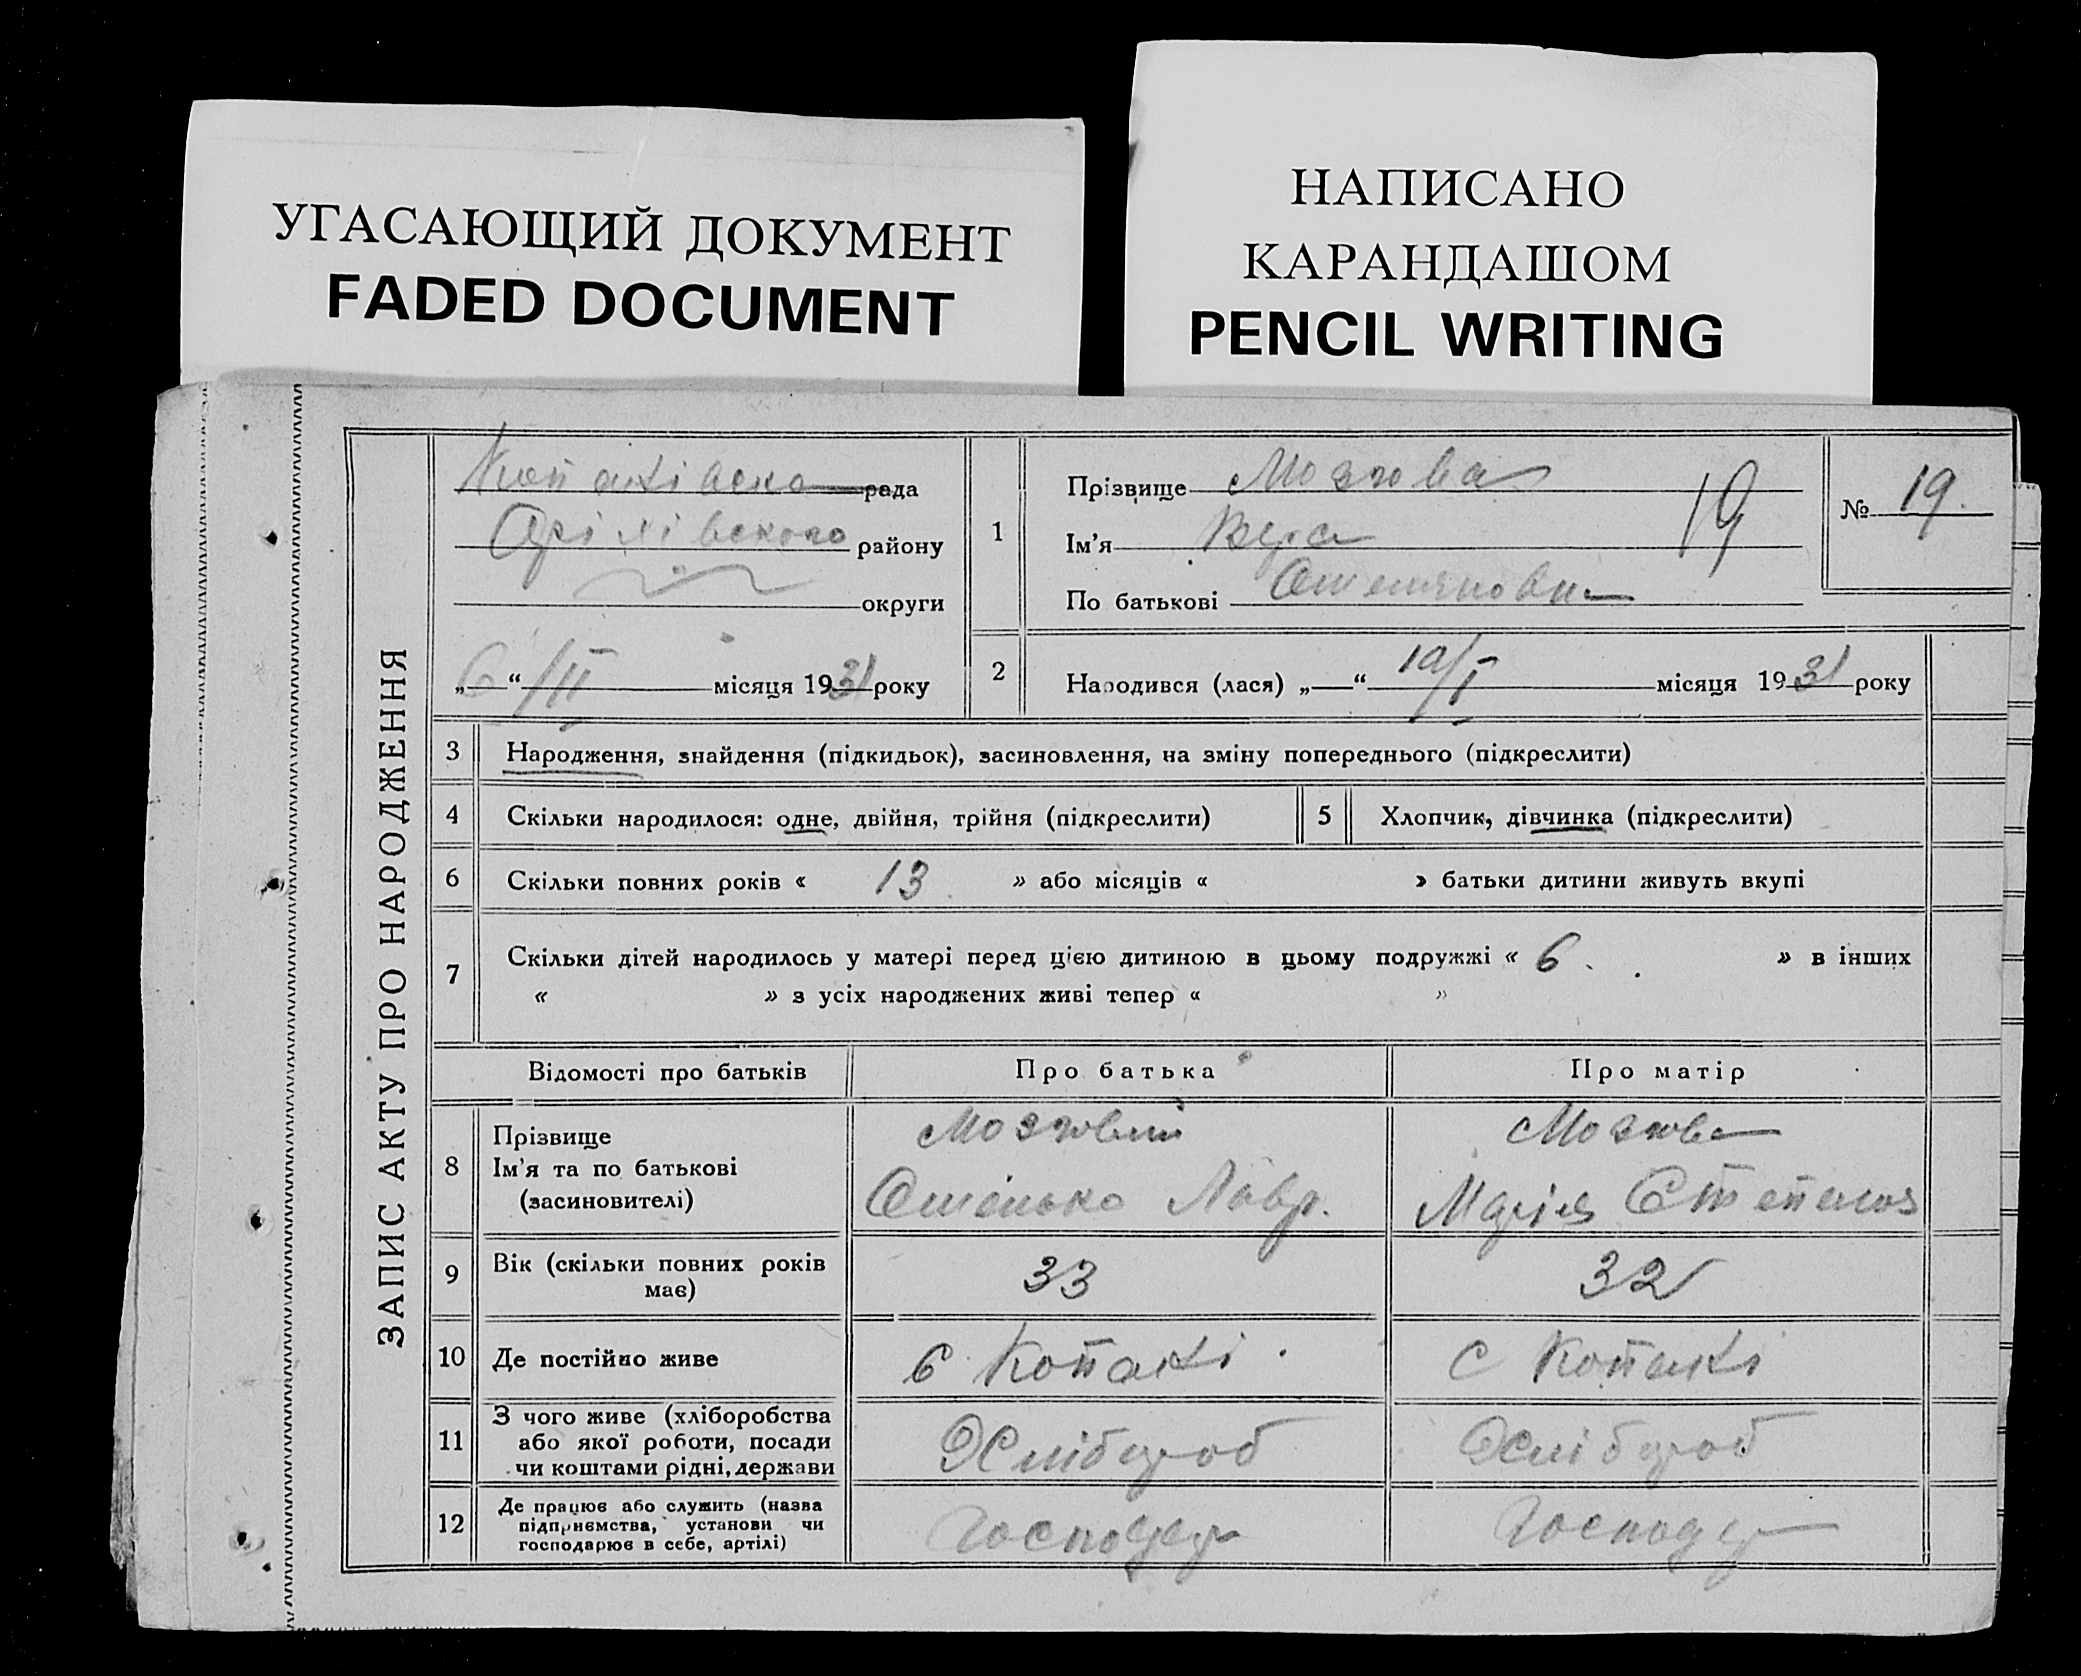 УГАСАЮЩИЙ ДОКУМЕНТ
FADED DOCUMENT
НАПИСАНО
КАРАНДАШОМ
PENCIL WRITING
ЗАПИС АКТУ ПРО НАРОДЖЕННЯ
рада
району
округи
„6“ /ІІ місяця 1931 року
1
Прізвище Мозгова
Ім’я Вера
По батькові
19
№ 19.
2
Народився (лася) „ “ /І місяця 1931 року
3 Народження, знайдення (підкидьок), засиновлення, на зміну попереднього (підкреслити)
4 Скільки народилося: одне, двійня, трійня (підкреслити)
5 Хлопчик, дівчинка (підкреслити)
6 Скільки повних років « 13 » або місяців « » батьки дитини живуть вкупі
7 Скільки дітей народилось у матері перед цією дитиною в цьому подружжі « 6. » в інших
« » з усіх народжених живі тепер « »
Відомості про батьків Про батька Про матір
8 Прізвище
Ім’я та по батькові
(засиновителі)
Мозговий
Лавр.
Мозгова
Марія Степанов
9 Вік (скільки повних років
має)
33
32
10 Де постійно живе
с Копакі
с Копакі
11 З чого живе (хліборобства
або якої роботи, посади
чи коштами рідні, держави
Хлібороб
Хлібороб
12 Де працює або служить (назва
підприємства, установи чи
господарює в себе, артілі)
Господар